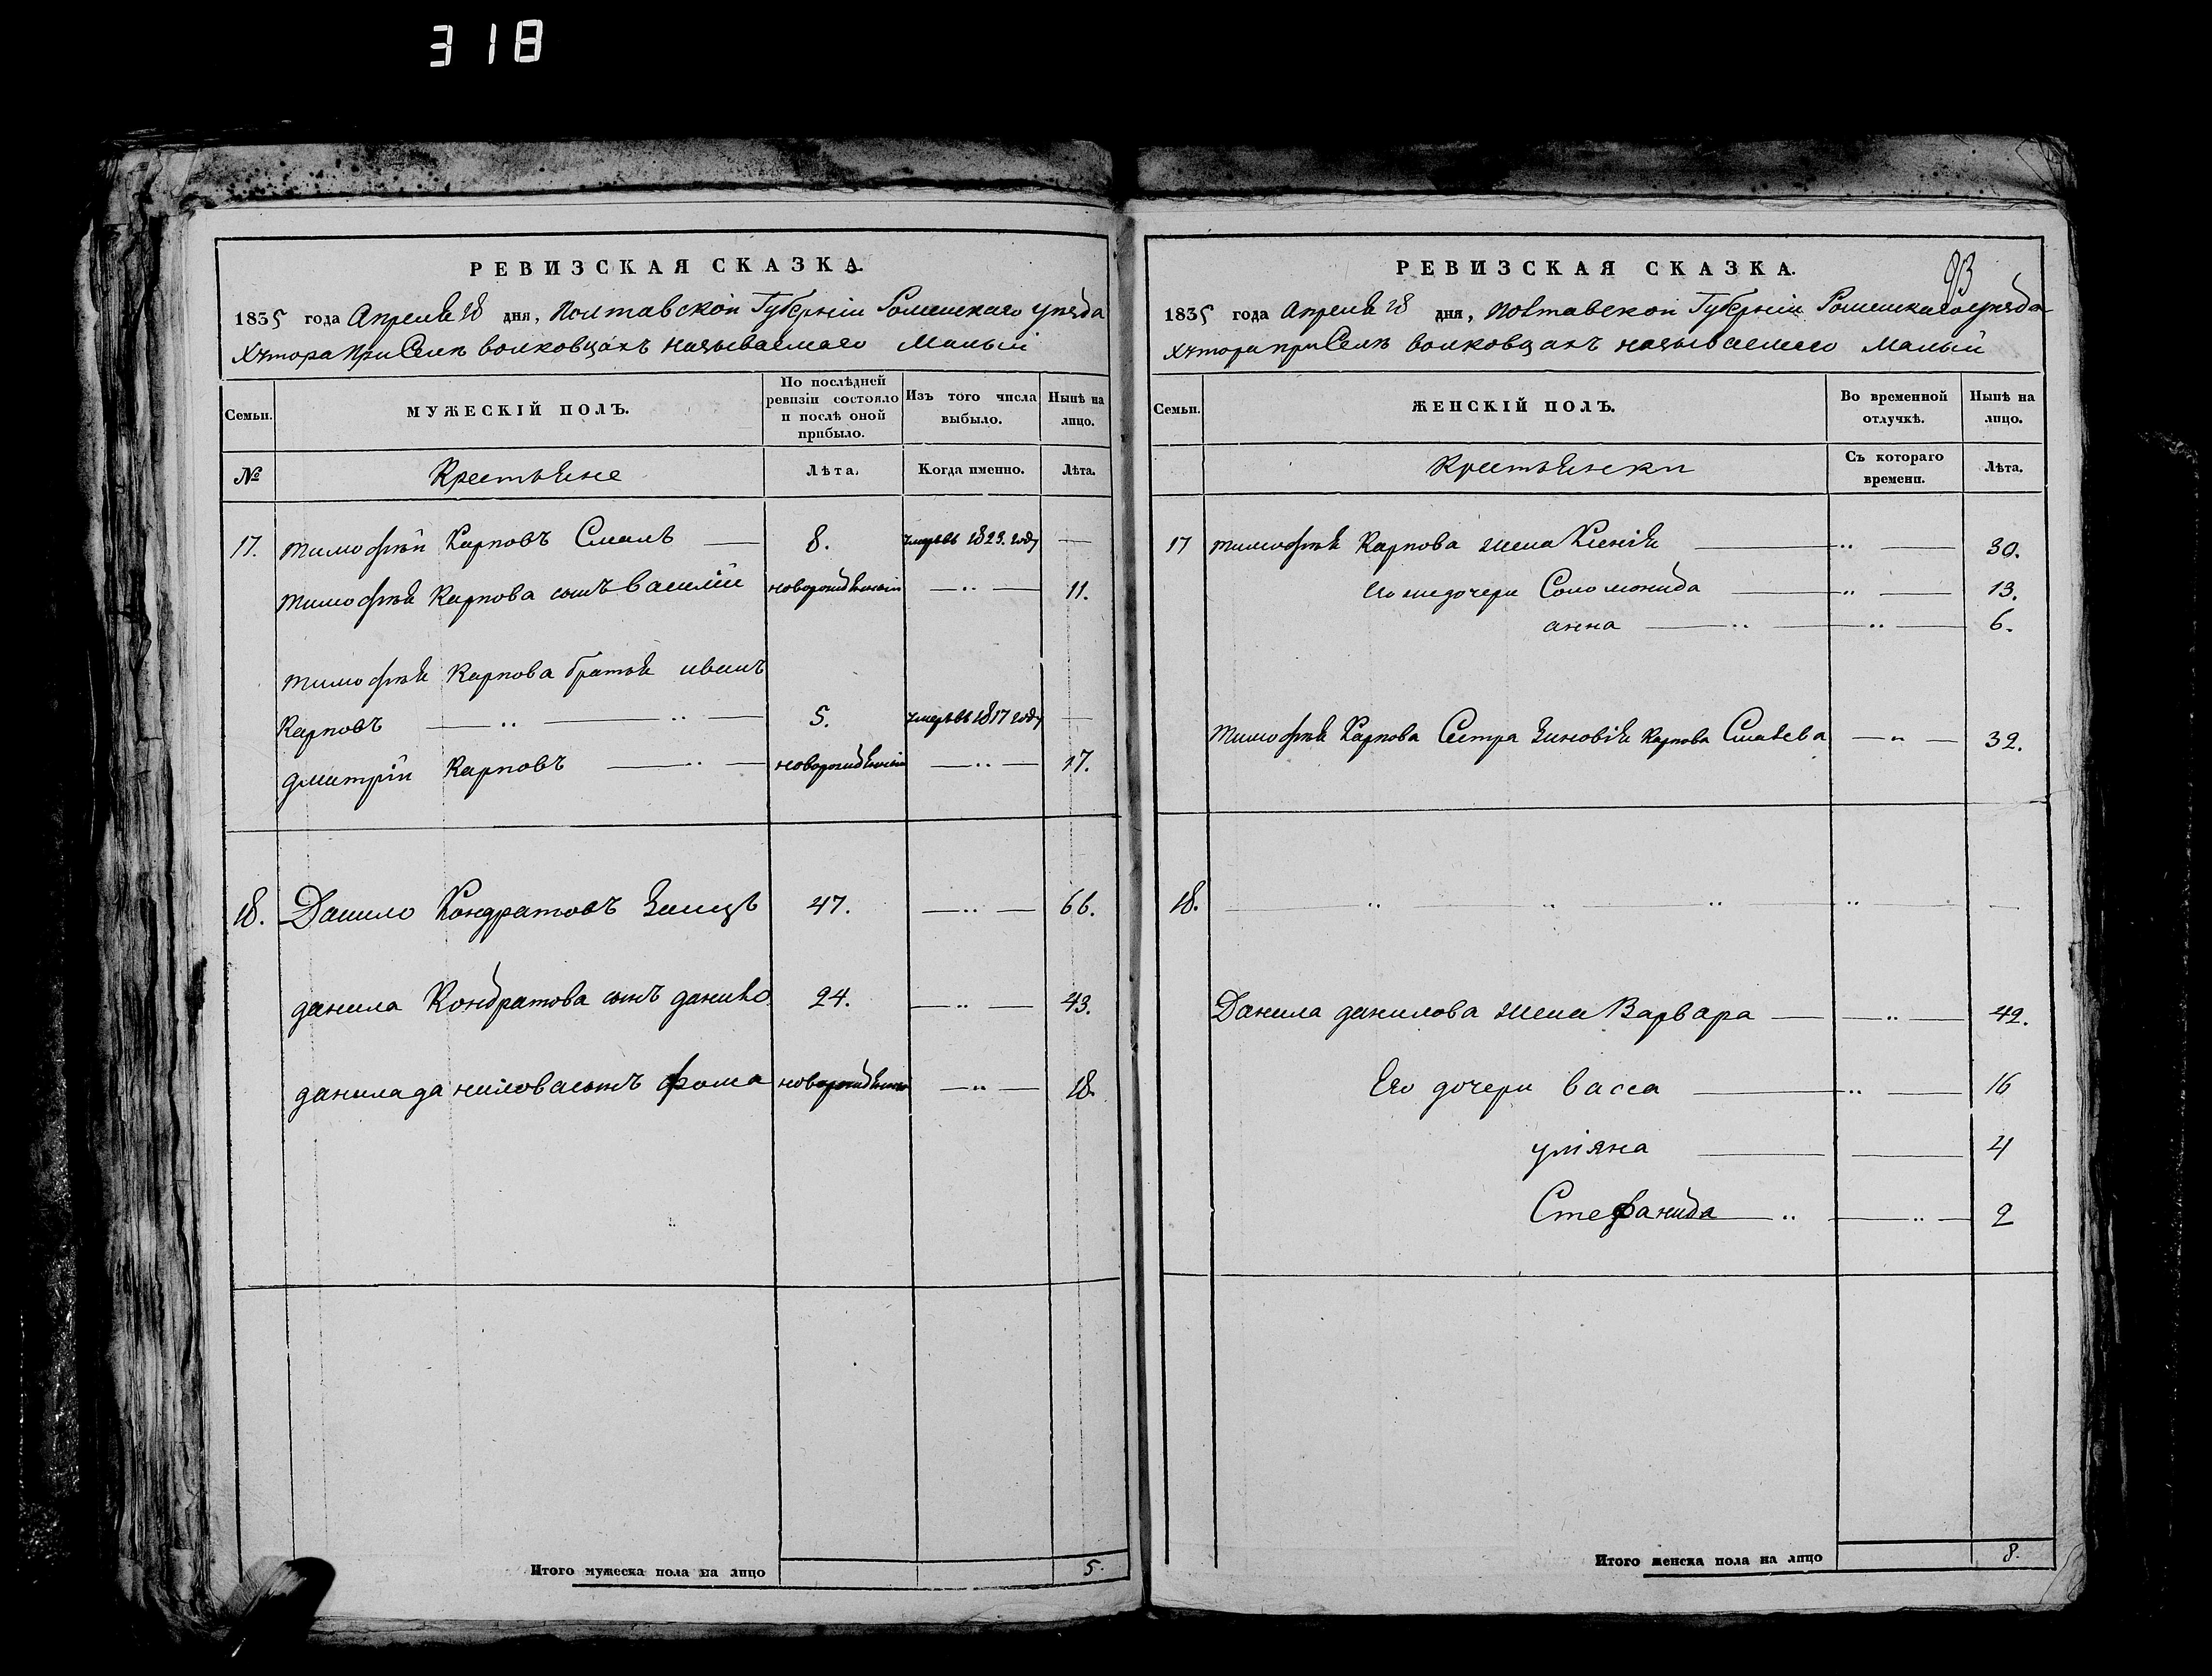 318
РЕВИЗСКАЯ СКАЗКА.
1835 года Апреля 18 дня, Полтавской Губерніи Роменскаго уезда
Хутора при Селе волковцахъ называемаго Малый
Семьи.
МУЖЕСКІЙ ПОЛЪ.
По послѣдней ревизіи состояло и послѣ оной прибыло.
Изъ того числа выбыло.
Нынѣ на лицо.
№
Крестьяне
Лѣта.
Когда именно.
Лѣта.
17. тимофей Карповъ Смаль — 8. умеръ въ 1823. году —
тимофея Карпова сынъ василий новорожденный — 11.
тимофея Карпова братья иванъ
Карповъ — 5. умеръ въ 1817 году —
дмитрий Карповъ — новорожденный — 17.
18. Данило Кондратовъ 47. — 66.
данила Кондратова сынъ данило 24. — 43.
данила данилова сынъ фома новорожденный — 18.
Итого мужеска пола на лицо 5.
93
РЕВИЗСКАЯ СКАЗКА.
1835 года Апреля 18 дня, Полтавской Губерніи Роменскаго уезда
Хутора при Селе волковцахъ называемаго Малый
Семьи.
ЖЕНСКІЙ ПОЛЪ.
Во временной отлучкѣ.
Нынѣ на лицо.
Крестьянки
Съ котораго времени.
Лѣта.
17 тимофея Карпова жена Ксенія — 30.
Его же дочери Соломонида — 13.
анна — 6.
Тимофея Карпова Сестра Зиновія Карпова Смалева — 32.
18. —
Данила данилова жена Варвара — 42.
Его дочери васса — 16
уліяна — 4
Стефанида — 2
Итого женска пола на лицо 8.